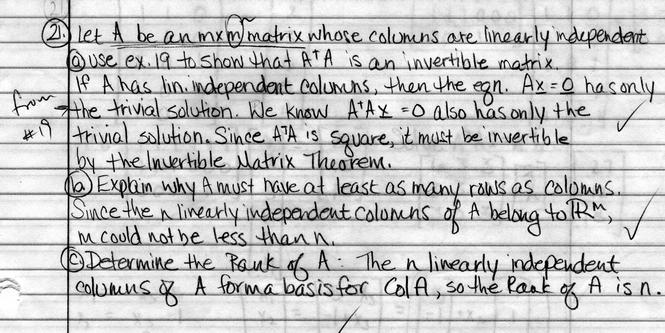 21. let A be an mxm matrix whose columns are linearly independent
a use ex. 19 to show that AᵀA is an invertible matrix.
If A has lin. independent columns, then the eqn. Ax = 0 has only
from #19 → the trivial solution. We know AᵀAx = 0 also has only the
trivial solution. Since AᵀA is square, it must be invertible
by the Invertible Matrix Theorem.
b Explain why A must have at least as many rows as columns.
Since the n linearly independent columns of A belong to ℝᵐ,
m could not be less than n.
c Determine the Rank of A: The n linearly independent
columns of A form a basis for Col A, so the Rank of A is n.